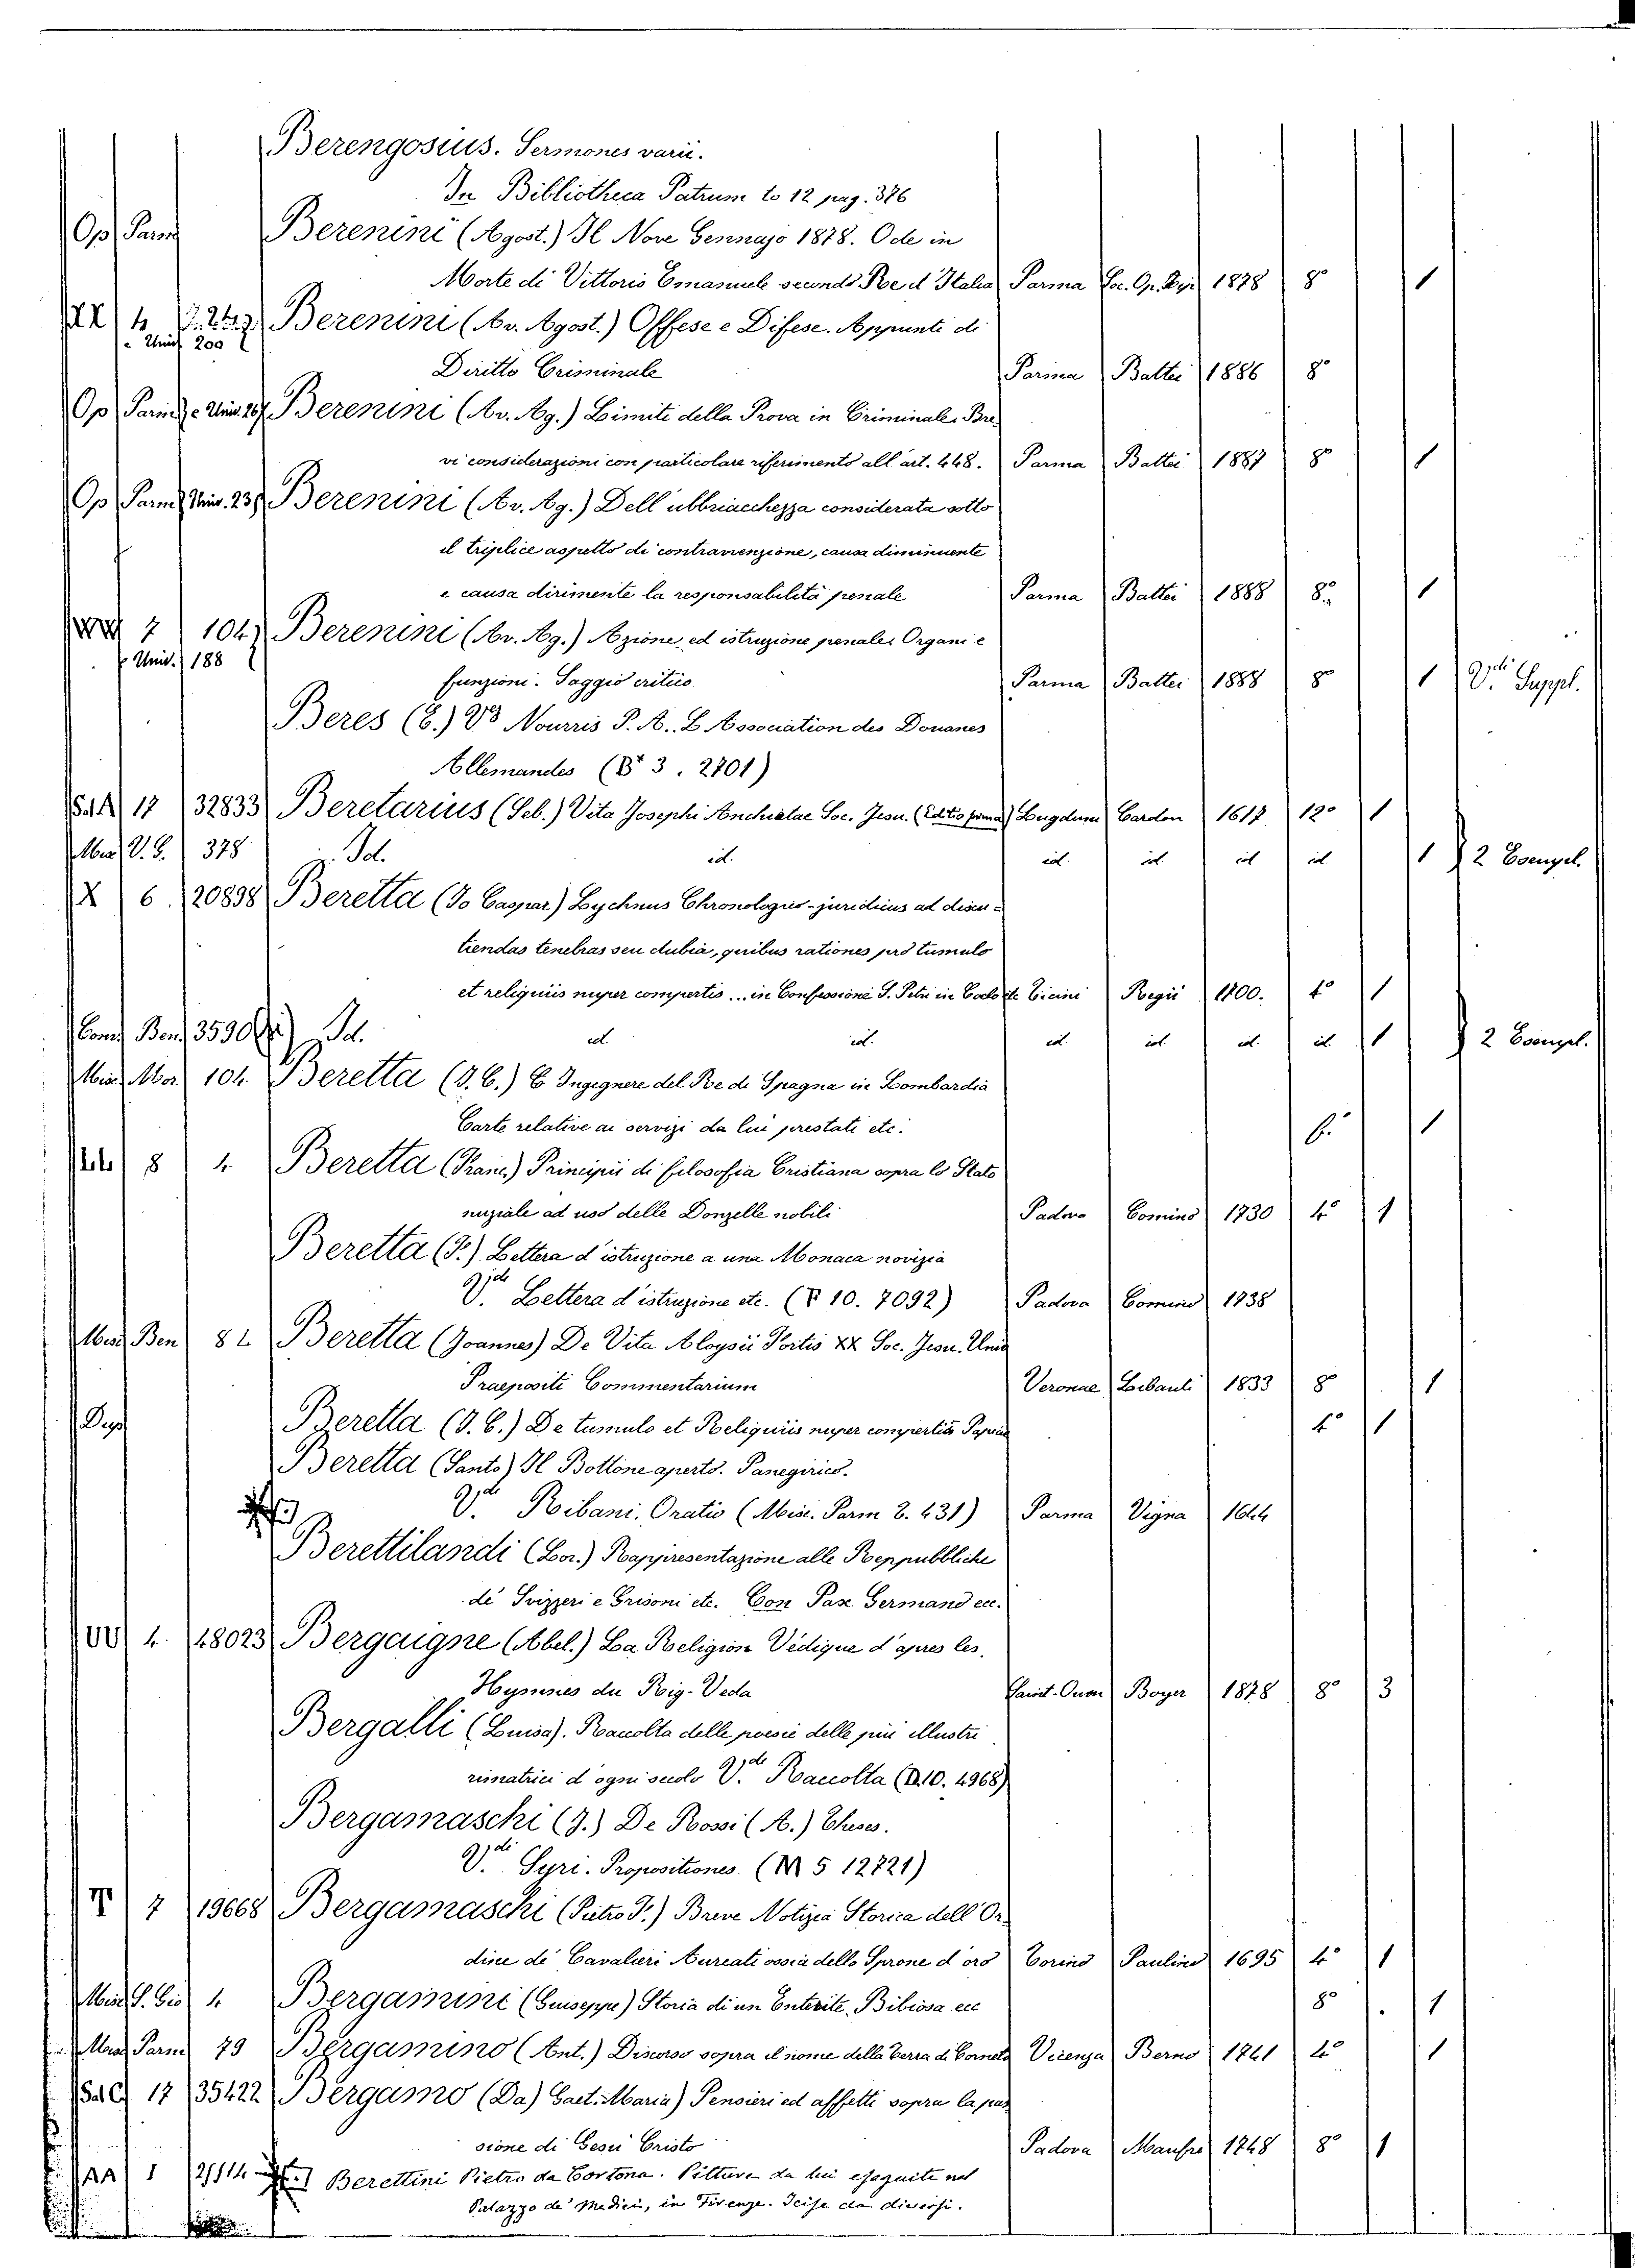 Berengosius. Sermones varii.
In Bibliotheca Patrum to 12 pag. 376
Op Parm Berenini (Agost.) Il Nove Gennajo 1878. Ode in
Morte di Vittorio Emanuele secondo Re d'Italia Parma Soc. Op. 1878 8° 1
4 Berenini (Av. Agost.) Offese e Difese. Appunti di
e Univ. 200
Diritto Criminale Parma Battei 1886 8°
Op Parm e Univ. Berenini (Av. Ag.) Limiti della Prova in Criminale. Bre
vi considerazioni con particolare riferimento all'art. 448. Parma Battei 1887 8° 1
Op Parm Univ. 23 Berenini (Av. Ag.) Dell'ubbriacchezza considerata sotto
il triplice aspetto di contravvenzione, causa diminuente
e causa dirimente la responsabilità penale Parma Battei 1888 8° 1
7 104 Berenini (Av. Ag.) Azione ed istruzione penale. Organi e
Univ. 188
funzioni. Saggio critico Parma Battei 1888 8° 1 Vdi Suppl.
Beres (E.) Vo Nourris P. A. L'Association des Douanes
Allemandes ( 3. 2701)
Sal 17 32833 Beretarius (Seb.) Vita Josephi Anchietae Soc. Jesu. (Editio prima) Lugdum Cardon 1617 12° 1
Misc V. E. 378 Id. id. id. id. id. id. 1 2 Esempl.
X 6 20898 Beretta (Jo Caspar) Lychnus Chronologico-juridicus ad discu-
tiendas tenebras seu dubia, quibus rationes pro tumulo
et reliquiis nuper compertis... in Confessione S. Petri in Coelo Ticini Regii 1700. 4° 1
Cons Ben 3590 Id. id. id. id. id. id. id. 1 2 Esempl.
Misc Mor 104 Beretta (J. C.) C Ingegnere del Re di Spagna in Lombardia
Carte relative ai servizi da lui prestati etc. 1
8 4 Beretta (Franc.) Principii di filosofia Cristiana sopra lo Stato
nuziale ad uso delle Donzelle nobili Padova Comino 1730 4° 1
Beretta (F.) Lettera d'istruzione a una Monaca novizia
Vdi Lettera d'istruzione etc. ( 10. 7092) Padova Comino 1738
Misc Ben 82 Beretta (Joannes) De Vita Aloysii Fortis XX Soc. Jesu. Univ
Praepositi Commentarium Veronae Libanti 1833 8° 1
Dup Beretta (J. C.) De tumulo et Reliquiis nuper compertis Papiae 4° 1
Beretta (Santo) Il Bottone aperto. Panegirico.
Vdi Ribani. Oratio (Misc. Parm 8. 431) Parma Vigna 1644
Berettilandi (Lor.) Rappresentazione alle Reppubbliche
de' Svizzeri e Grisoni etc. Con Pax Germand ecc.
VV 4. 48023 Bergaigne (Abel.) La Religion Vedique d'apres les
Hymnes du Rig-Veda Saint-Ouen Boyer 1878 8° 3
Bergalli (Luisa). Raccolta delle poesie delle più illustri
rimatrici d'ogni secolo Vdi Raccolta (D.10. 4968)
Bergamaschi (G.) De Rossi (A.) Theses.
Vdi Syri. Propositiones. (M 5 12721)
7 19668 Bergamaschi (Pietro F.) Breve Notizia Storica dell'Or
dine de' Cavalieri Aureati ossia dello Sprone d'oro Torino Paulino 1695 4° 1
Misc S. Gio 4 Bergamini (Guiseppe) Storia di un Enterite Bibiosa ecc 8° 1
Misc Parm 79 Bergamino (Ant.) Discorso sopra il nome della Terra di Corneto Vicenza Berno 1741 4° 1
Sal C 17 35422 Bergamo (Da) Gaet. Maria) Pensieri ed affetti sopra la pas
sione di Gesù Cristo Padova Manfrè 1748 8° 1
AA 1 Berettini Pietro da Cortona. Pitture da lui eseguite nel
Palazzo de' Medici, in Firenze. Incise da diversi.